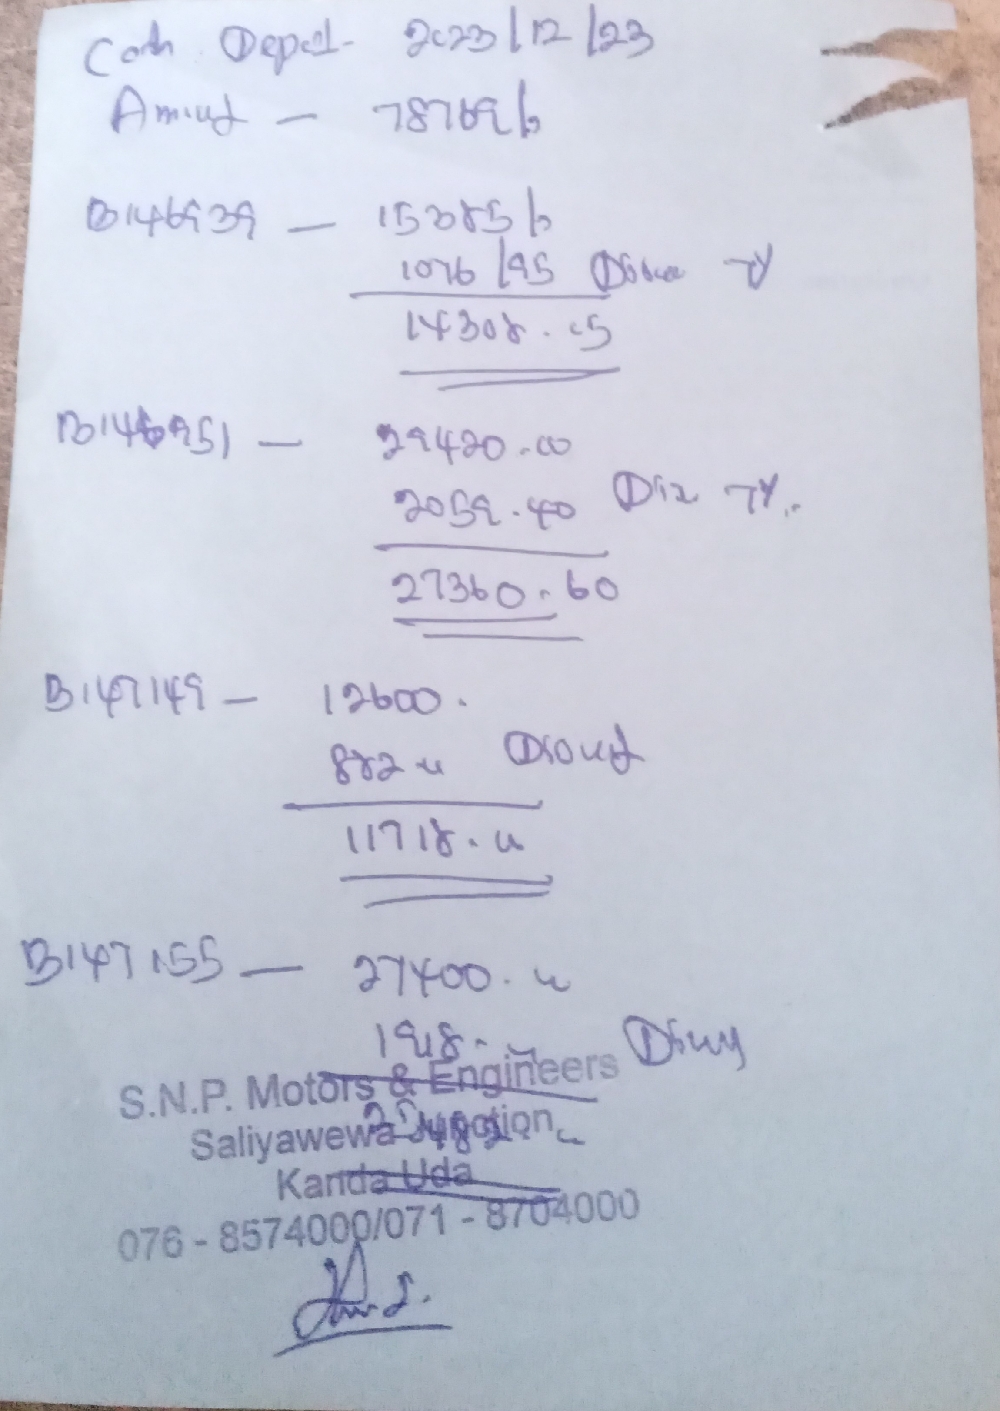 Cash Deposit - 2023/12/23
Amount - 78769/=
B146939 - 15385/=
1076/95 Discount 7%
14308.05
B146951 - 29420.00
2059.40 Dis 7%.
27360.60
B147149 - 12600.
882.00 Discount
11718.00
B147155 - 27400.00
1918.- Discount
25482.00
S.N.P. Motors & Engineers
Saliyawewa Junction,
Kanda Uda
076 - 8574000/071 - 8704000